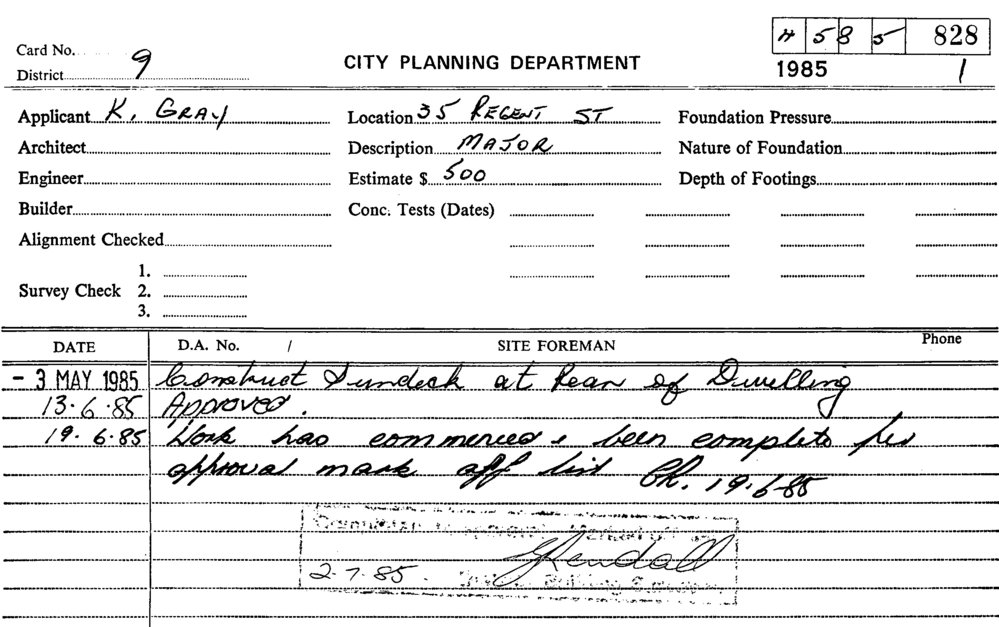 H 5 8 5 828
Card No.
District 9
CITY PLANNING DEPARTMENT
1985 1
Applicant K. GRAY
Location 35 REGENT ST
Foundation Pressure
Architect
Description MAJOR
Nature of Foundation
Engineer
Estimate $ 500
Depth of Footings
Builder
Conc. Tests (Dates)
Alignment Checked
1.
Survey Check 2.
3.
DATE D.A. No. / SITE FOREMAN Phone
- 3 MAY 1985 Construct Sundeck at Rear of Dwelling
13.6.85 Approved.
19.6.85 Work has commenced & been complete per
approval mark off list 19.6.85
Kendall
2.7.85.